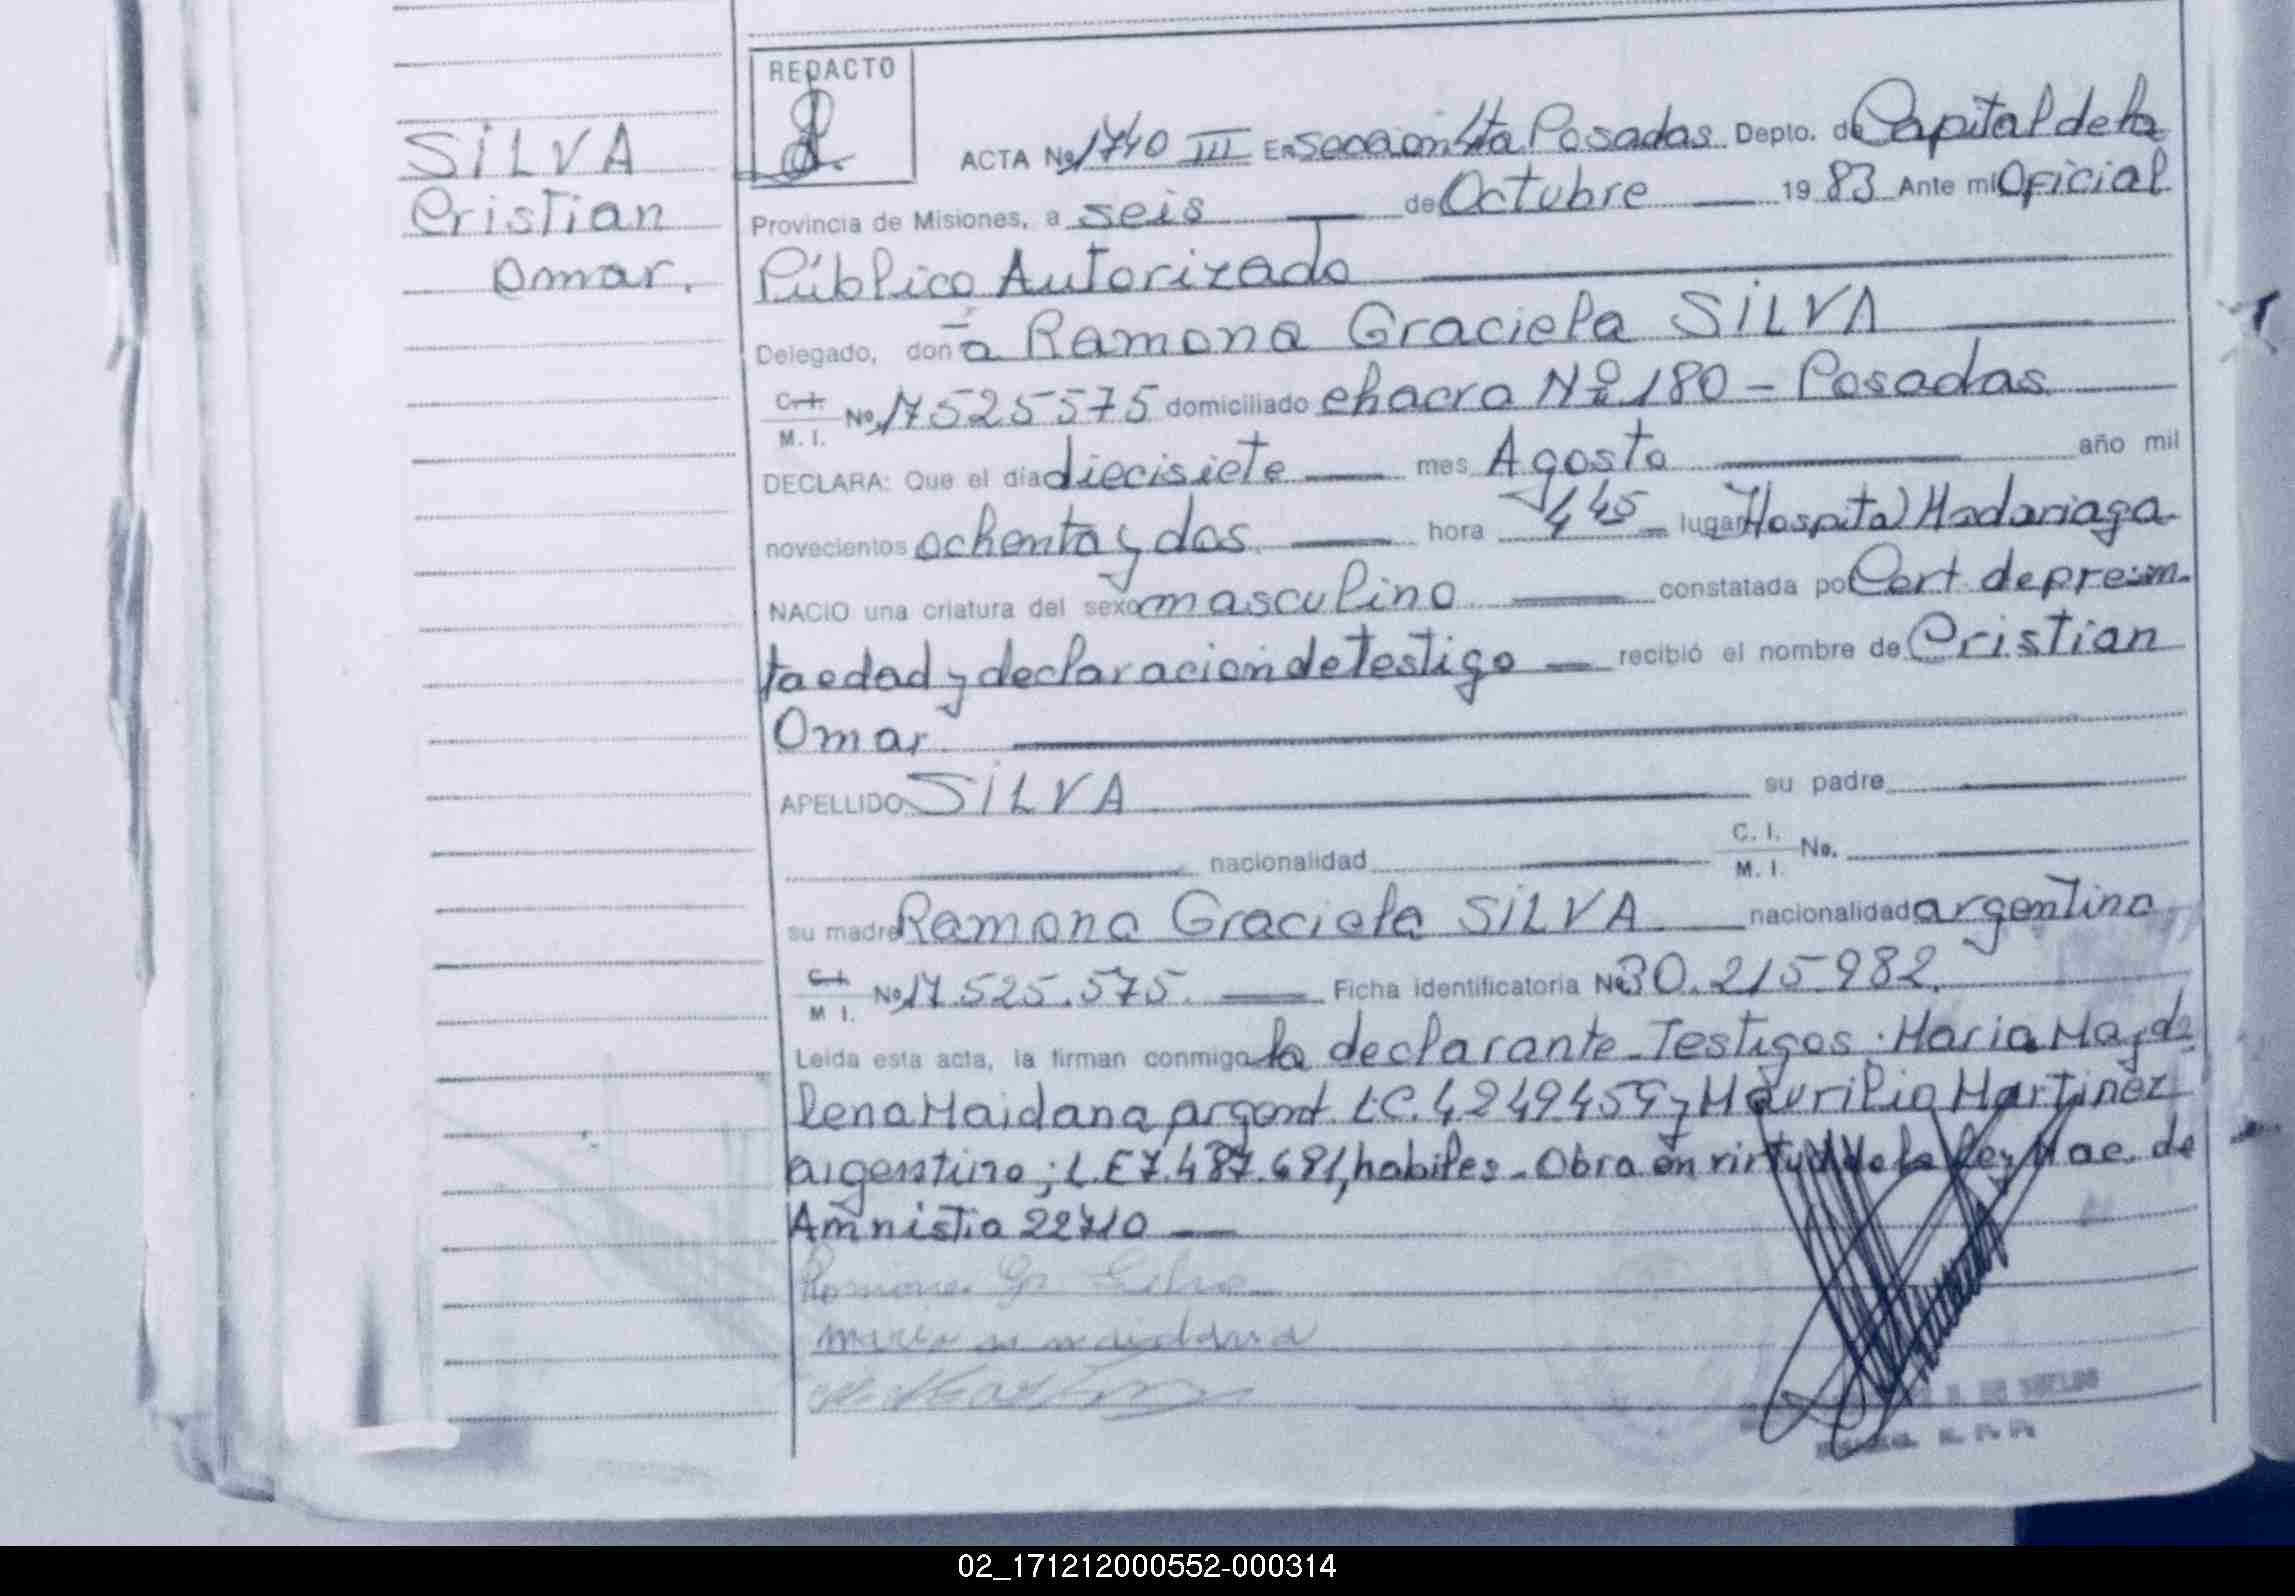 REDACTO
SILVA
Cristian
Omar.
ACTA No 1740 III En Sección 4ta Posadas Depto. de Capital de la
Provincia de Misiones, a seis de Octubre 19 83 Ante mi Oficial
Público Autorizado
Delegado, don a Ramona Graciela SILVA
C.I. M. I. No. 17525575 domiciliado chacra Nº 180 - Posadas
DECLARA: Que el día diecisiete mes Agosto año mil
novecientos ochenta y dos hora 4 45 lugar Hospital Madariaga
NACIO una criatura del sexo masculino constatada por Cert de presun
ta edad y declaración de testigo recibió el nombre de Cristian
Omar
APELLIDO SILVA su padre
nacionalidad C. I. M. I. No.
su madre Ramona Graciela SILVA nacionalidad argentina
C.I. M I. No 17.525.575. Ficha identificatoria No 30.215.982.
Leida esta acta, la firman conmigo la declarante - Testigos: Maria Magda
lena Maidana argent. LC. 4249459 y Maurilio Martinez
argentino; L.E 7.487.681, habiles - Obra en virtud de la ley Nac. de
Amnistia 22710
Ramona G. Silva